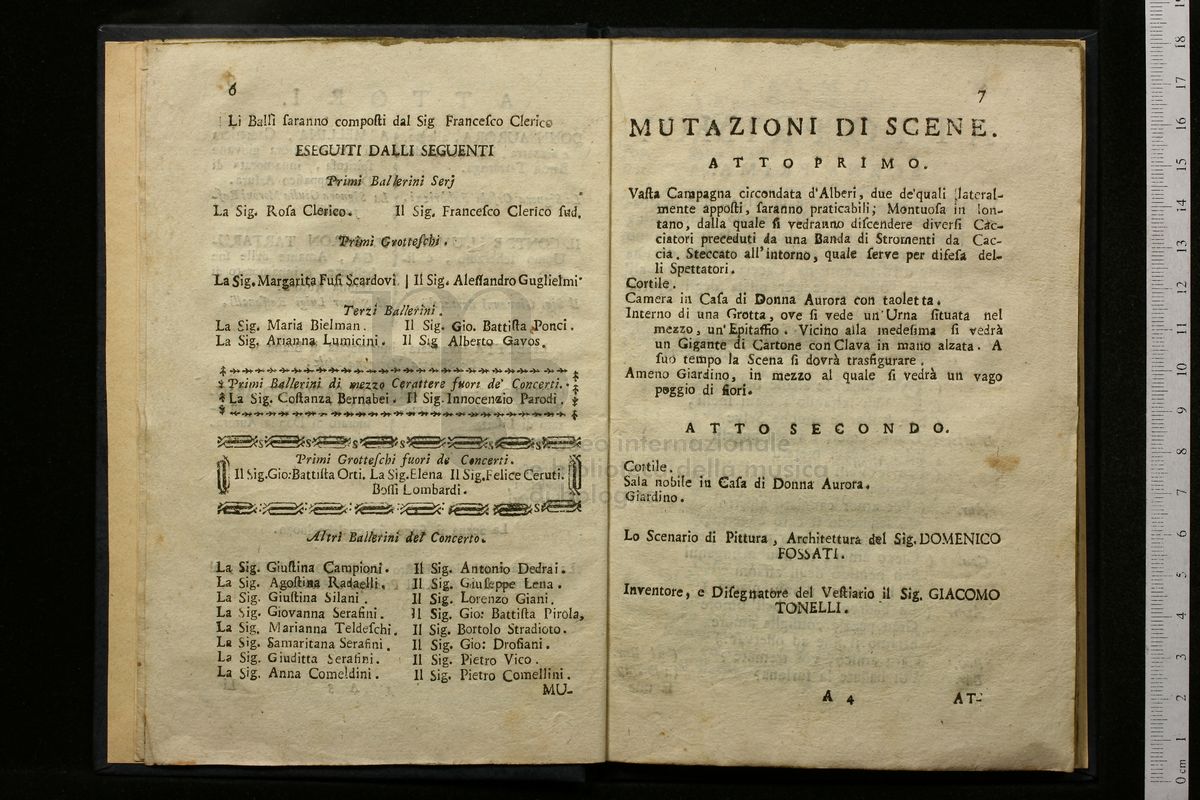 6
Li Balli saranno composti dal Sig Francesco Clerico
ESEGUITI DALLI SEGUENTI
Primi Ballerini Serj
La Sig. Rosa Clerico. Il Sig. Francesco Clerico sud.
Primi Grotteschi.
La Sig. Margarita Fusi Scardovi | Il Sig. Alessandro Guglielmi
Terzi Ballerini.
La Sig. Maria Bielman. Il Sig. Gio. Battista Ponci.
La Sig. Arianna Lumicini. Il Sig Alberto Gavos.
Primi Ballerini di mezzo Cerattere fuori de' Concerti.
La Sig. Costanza Bernabei. Il Sig. Innocenzio Parodi
Primi Grotteschi fuori de Concerti.
Il Sig. Gio: Battista Orti. La Sig. Elena Il Sig. Felice Ceruti.
Bossi Lombardi.
Altri Ballerini del Concerto.
La Sig. Giustina Campioni. Il Sig. Antonio Dedrai.
La Sig. Agostina Radaelli. Il Sig. Giuseppe Lena.
La Sig. Giustina Silani. Il Sig. Lorenzo Giani.
La Sig. Giovanna Serafini. Il Sig. Gio: Battista Pirola,
La Sig. Marianna Teldeschi. Il Sig. Bortolo Stradioto.
La Sig. Samaritana Serafini. Il Sig. Gio: Drosiani.
La Sig. Giuditta Serafini. Il Sig. Pietro Vico.
La Sig. Anna Comeldini. Il Sig. Pietro Comellini.
MU-
7
MUTAZIONI DI SCENE.
ATTO PRIMO.
Vasta Campagna circondata d'Alberi, due de'quali lateral-
mente apposti, saranno praticabili; Montuosa in lon-
tano, dalla quale si vedranno discendere diversi Cac-
ciatori preceduti da una Banda di Stromenti da Cac-
cia. Steccato all'intorno, quale serve per difesa del-
li Spettatori.
Cortile.
Camera in Casa di Donna Aurora con taoletta.
Interno di una Grotta, ove si vede un'Urna situata nel
mezzo, un'Epitaffio. Vicino alla medesima si vedrà
un Gigante di Cartone con Clava in mano alzata. A
suo tempo la Scena si dovrà trasfigurare.
Ameno Giardino, in mezzo al quale si vedrà un vago
poggio di fiori.
ATTO SECONDO.
Cortile.
Sala nobile in Casa di Donna Aurora.
Giardino.
Lo Scenario di Pittura, Architettura del Sig. DOMENICO
FOSSATI.
Inventore, e Disegnatore del Vestiario il Sig. GIACOMO
TONELLI.
A 4
AT-
museo internazionale
e biblioteca della musica
di bologna
0 cm 1 2 3 4 5 6 7 8 9 10 11 12 13 14 15 16 17 18 19